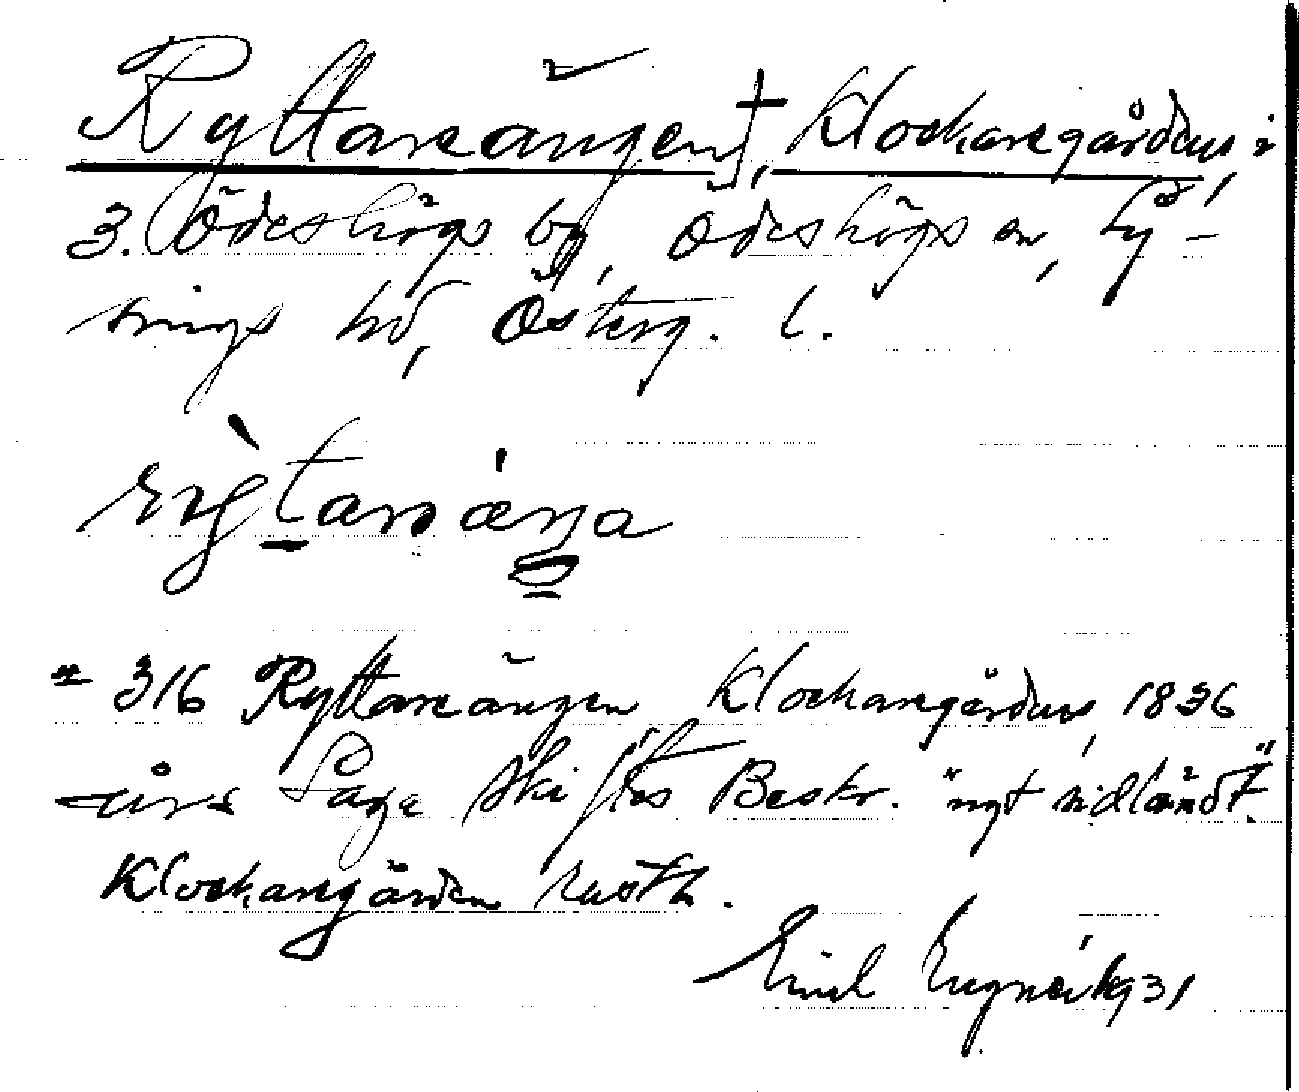 Ryttareängen †, Klockaregårdens, i
3. Ödeshögs by, Ödeshögs sn, Ly-
sings hd, Österg. l.
= 316 Ryttareängen Klockaregårdens, 1836
års Laga Skiftes Beskr. "nyt sidländt".
Klockaregården rusth.
Emil 1931